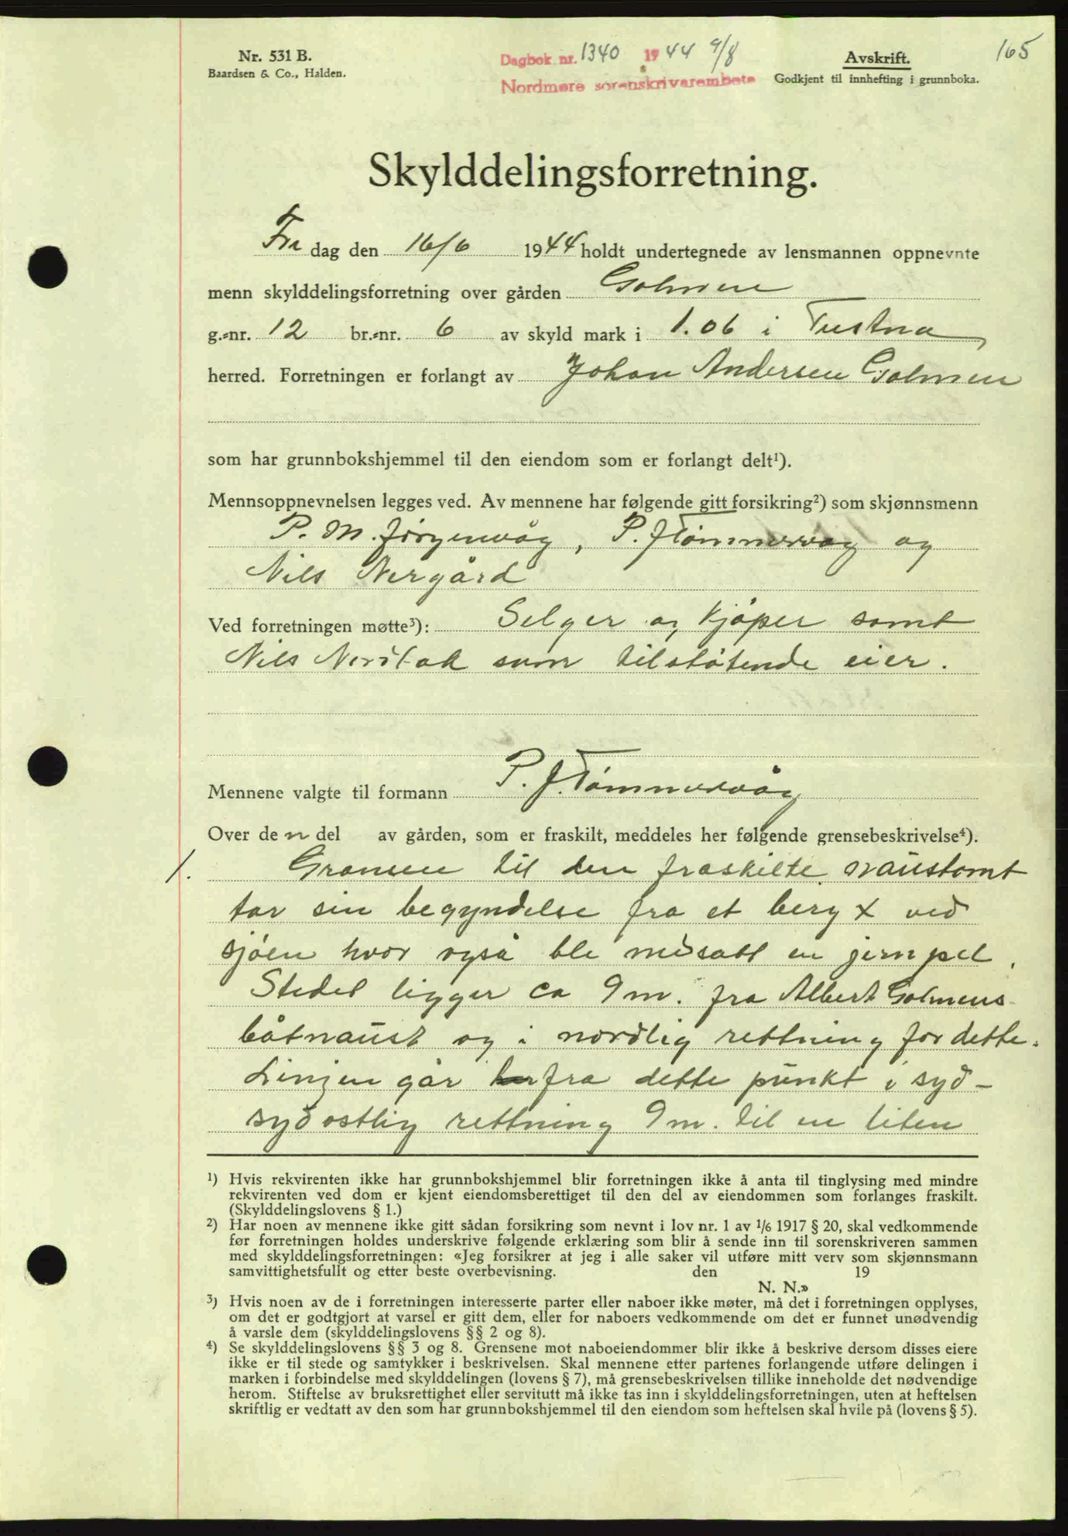 Nr. 531 B.
Baardsen & Co., Halden.
Dagbok nr. 1340 1944 9/8
Nordmøre sorenskrivarembete
Avskrift.
Godkjent til innhefting i grunnboka.
165
Skylddelingsforretning.
Fre dag den 16/6 1944 holdt undertegnede av lensmannen oppnevnte
menn skylddelingsforretning over gården Golmen
g.-nr. 12 br.-nr. 6 av skyld mark i 1.06 i Tustna
herred. Forretningen er forlangt av Johan Andersen Golmen
som har grunnbokshjemmel til den eiendom som er forlangt delt¹).
Mennsoppnevnelsen legges ved. Av mennene har følgende gitt forsikring²) som skjønnsmenn
P. M. Jörgenvåg, P. J Tömmervåg og
Nils Nergård
Ved forretningen møtte³): Selger og kjöper samt
Nils som tilstötende eier.
Mennene valgte til formann P. J. Tömmervåg
Over den del av gården, som er fraskilt, meddeles her følgende grensebeskrivelse⁴).
1. Grensen til den fraskilte naustomt
tar sin begyndelse fra et berg x ved
sjöen hvor også ble nedsatt en jernpel.
Stedet ligger ca 9 m. fra Albert Golmens
båtnaust og i nordlig rettning for dette.
Linjen går fra dette punkt i syd-
sydostlig rettning 9 m. til en liten
¹) Hvis rekvirenten ikke har grunnbokshjemmel blir forretningen ikke å anta til tinglysing med mindre
rekvirenten ved dom er kjent eiendomsberettiget til den del av eiendommen som forlanges fraskilt.
(Skylddelingslovens § 1.)
²) Har noen av mennene ikke gitt sådan forsikring som nevnt i lov nr. 1 av 1/6 1917 § 20, skal vedkommende
før forretningen holdes underskrive følgende erklæring som blir å sende inn til sorenskriveren sammen
med skylddelingsforretningen: «Jeg forsikrer at jeg i alle saker vil utføre mitt verv som skjønnsmann
samvittighetsfullt og etter beste overbevisning. den 19
N. N.»
³) Hvis noen av de i forretningen interesserte parter eller naboer ikke møter, må det i forretningen opplyses,
om det er godtgjort at varsel er gitt dem, eller for naboers vedkommende om det er funnet unødvendig
å varsle dem (skylddelingslovens §§ 2 og 8).
⁴) Se skylddelingslovens §§ 3 og 8. Grensene mot naboeiendommer blir ikke å beskrive dersom disses eiere
ikke er til stede og samtykker i beskrivelsen. Skal mennene etter partenes forlangende utføre delingen i
marken i forbindelse med skylddelingen (lovens § 7), må grensebeskrivelsen tillike inneholde det nødvendige
herom. Stiftelse av bruksrettighet eller servitutt må ikke tas inn i skylddelingsforretningen, uten at heftelsen
skriftlig er vedtatt av den som har grunnbokshjemmel til den eiendom som heftelsen skal hvile på (lovens § 5).